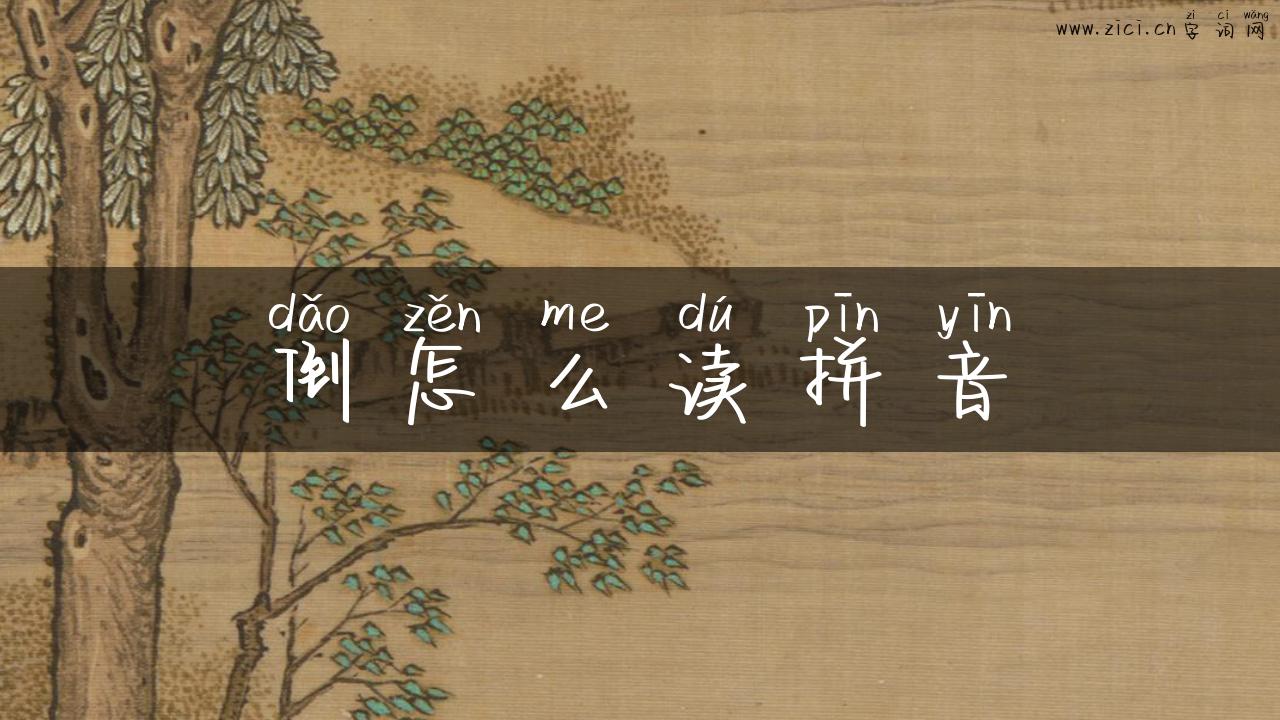 zì cí wǎng
www.zici.cn 字词网
dǎo zěn me dú pīn yīn
倒怎么读拼音